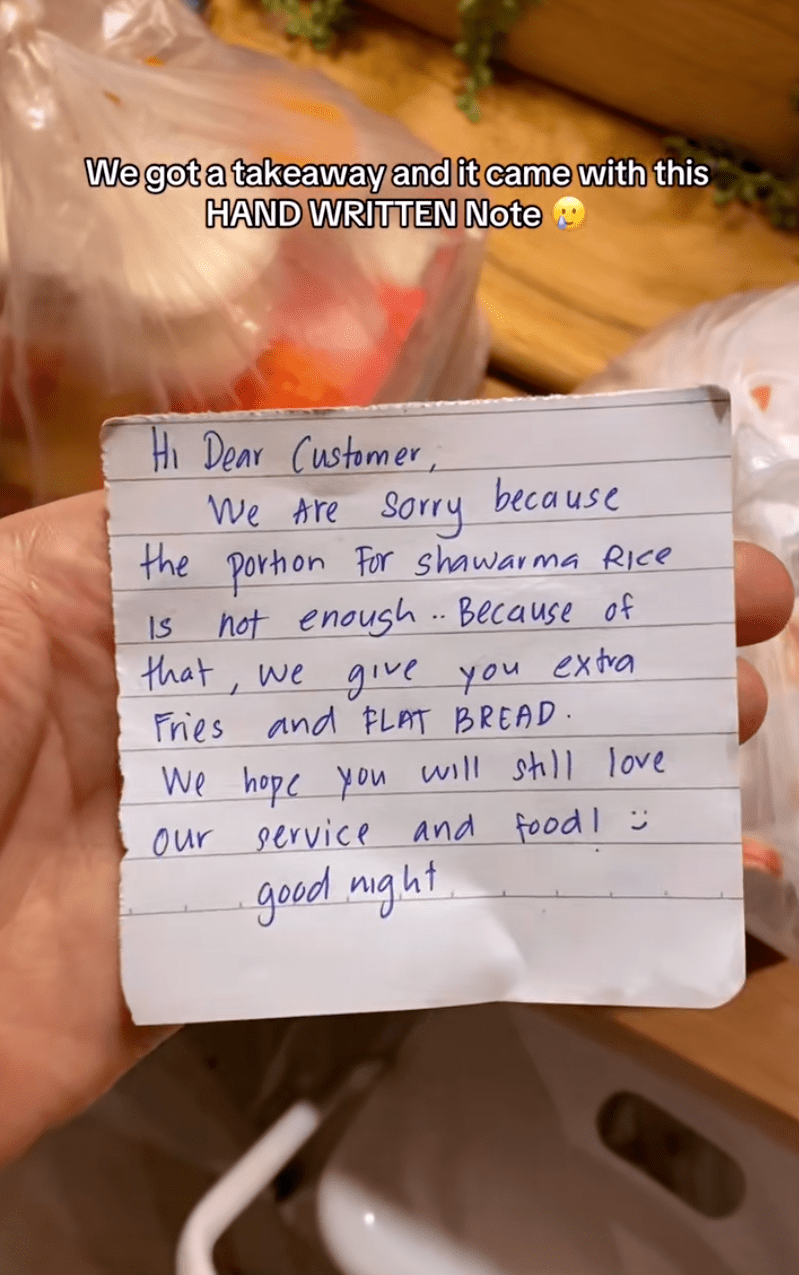 We got a takeaway and it came with this
HAND WRITTEN Note 🥲
Hi Dear Customer,
We Are Sorry because
the portion For shawarma Rice
Is not enough .. Because of
that, we give you extra
Fries and FLAT BREAD.
We hope you will still love
our service and food! :)
good night